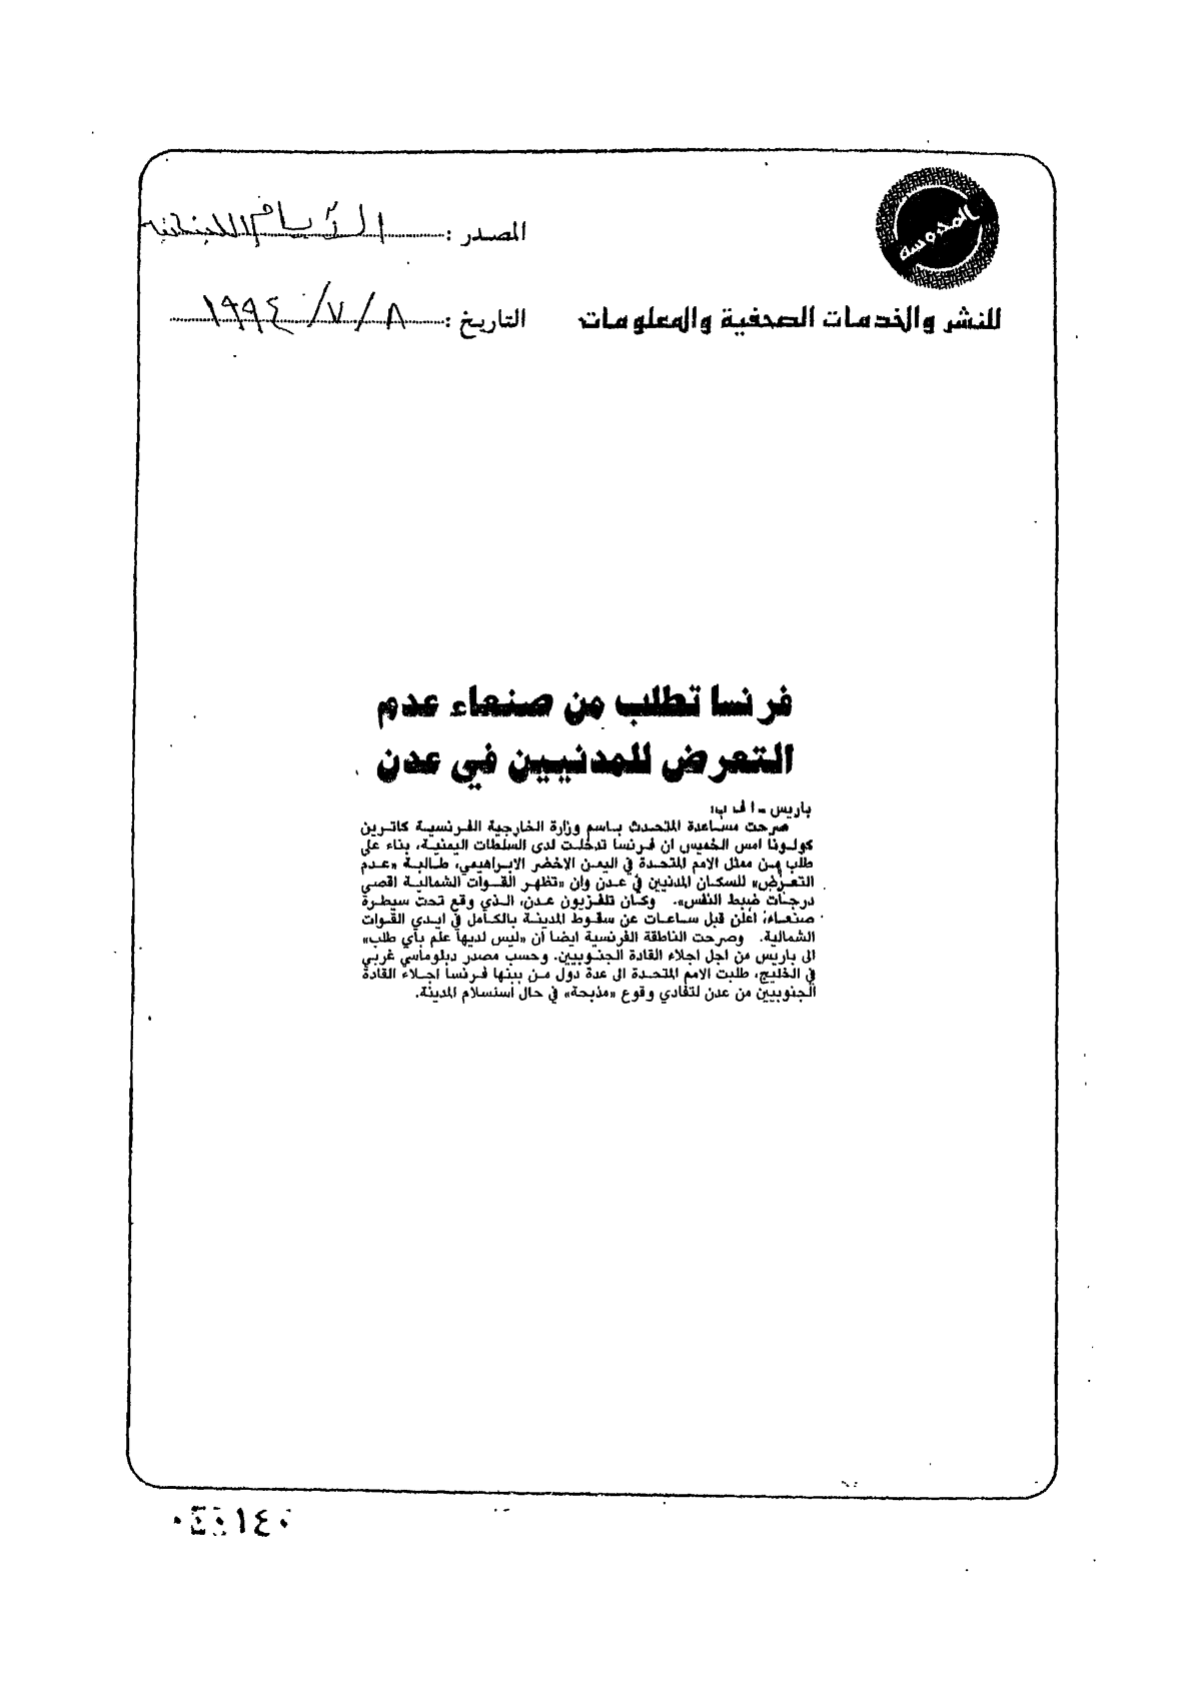 المحروسة
للنشر والخدمات الصحفية والمعلومات
المصدر : الأيام
التاريخ : ٨ / ٧ / ١٩٩٤
فرنسا تطلب من صنعاء عدم
التعرض للمدنيين في عدن
باريس - ا ف ب:
صرحت مساعدة المتحدث باسم وزارة الخارجية الفرنسية كاترين
كولونا امس الخميس ان فرنسا تدخلت لدى السلطات اليمنية، بناء على
طلب من ممثل الامم المتحدة في اليمن الاخضر الابراهيمي، طالبة «عدم
التعرض» للسكان المدنيين في عدن وان «تظهر القوات الشمالية اقصى
درجات ضبط النفس». وكان تلفزيون عدن، الذي وقع تحت سيطرة
صنعاء، أعلن قبل ساعات عن سقوط المدينة بالكامل في ايدي القوات
الشمالية. وصرحت الناطقة الفرنسية ايضا ان «ليس لديها علم بأي طلب»
الى باريس من اجل اجلاء القادة الجنوبيين. وحسب مصدر دبلوماسي غربي
في الخليج، طلبت الامم المتحدة الى عدة دول من بينها فرنسا اجلاء القادة
الجنوبيين من عدن لتفادي وقوع «مذبحة» في حال استسلام المدينة.